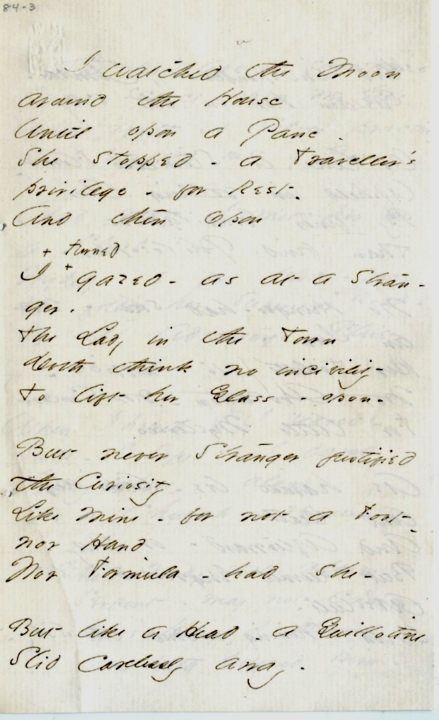 84-3
I watched the Moon
around the House
Until opon a Pane -
She stopped - a Traveller's
privilege - for Rest -
And there opon
+ turned
I + gazed - as at a Stran-
ger -
The Lady in the Town
doth think no incivility
To lift her Glass - opon -
But never Stranger justified
the Curiosity
Like Mine - for not a Foot -
nor Hand
Nor Formula - had she -
But like a Head - a Guillotine
Slid carelessly away -